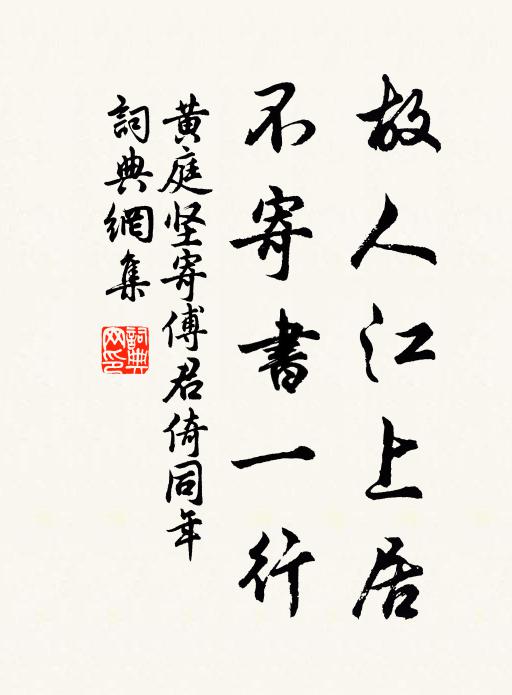 故人江上居
不寄書一行
黄庭坚寄傅君倚同年
詞典網集
詞典網印